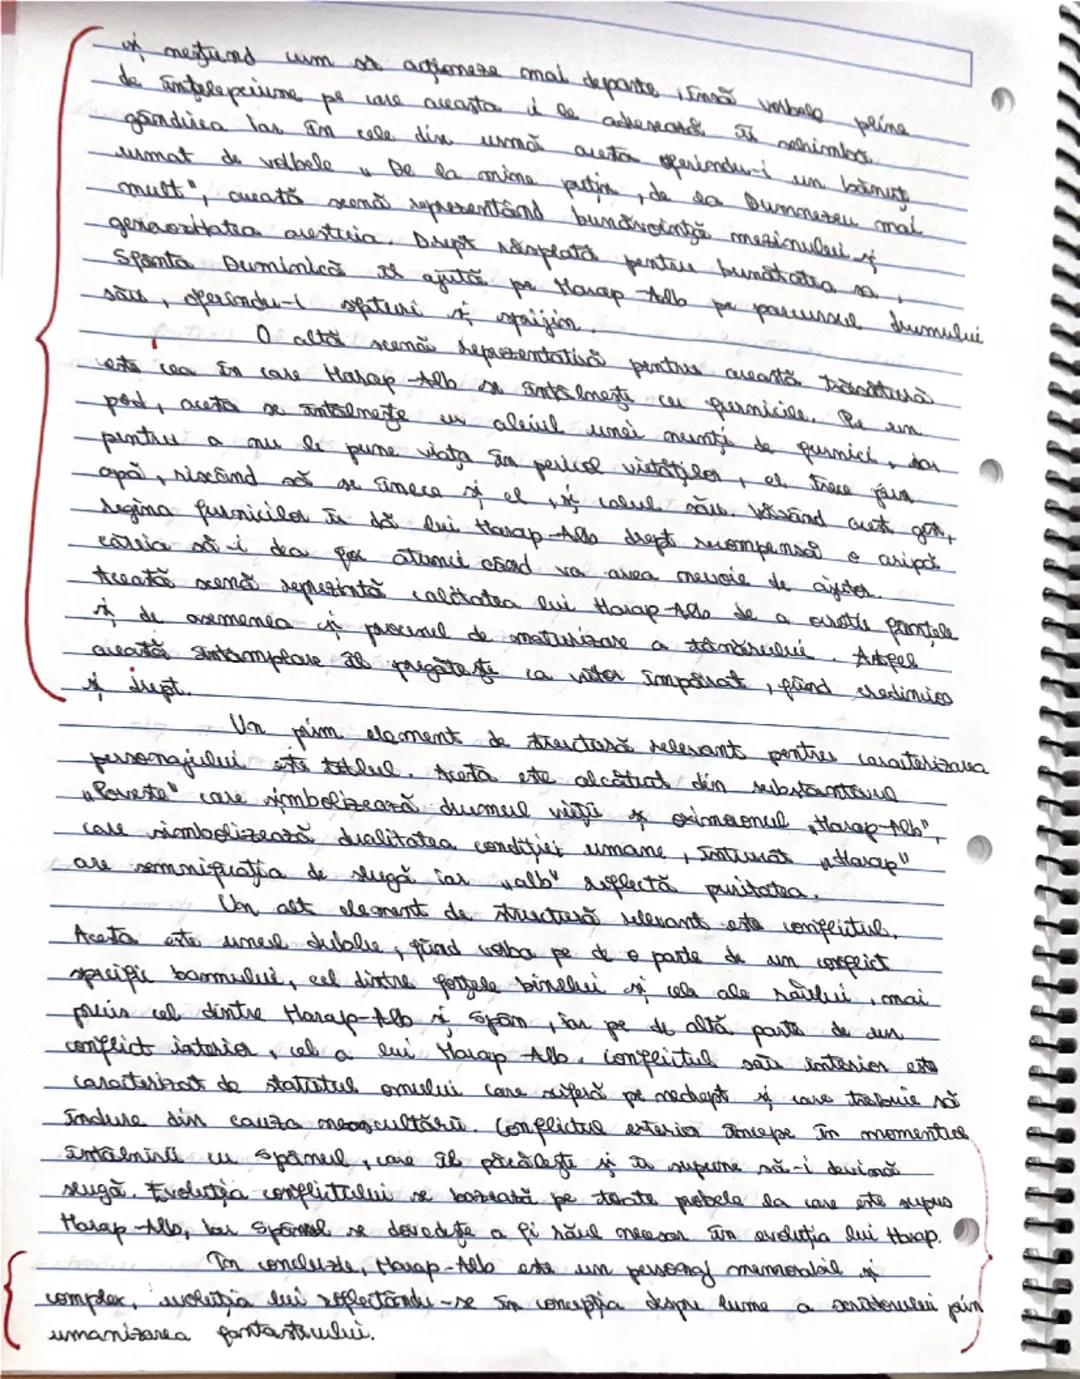 și neștiind cum să acționeze mai departe, însă vorbele pline
de înțelepciune pe care aceasta i le adresează îi schimbă
gândirea iar în cele din urmă acesta oferindu-i un bănuț
urmat de volbele „De la mine puțin, de la Dumnezeu mai
mult", această scenă reprezentând bunăvoința mezinului și
generozitatea acestuia. Drept răsplată pentru bunătatea sa,
Sfânta Duminică îl ajută pe Harap-Alb pe parcursul drumului
său, oferindu-i sfaturi și sprijin.
O altă scenă reprezentativă pentru această trăsătură
este cea în care Harap-Alb se întâlnește cu furnicile. Pe un
pod, acesta se întâlnește cu aleiul unei nunți de furnici, iar
pentru a nu le pune viața în pericol vietăților, el trece prin
apă, riscând să se înece și el, și calul său. Văzând acest gest,
regina furnicilor îi dă lui Harap-Alb drept recompensă o aripă
căreia să-i dea foc atunci când va avea nevoie de ajutor.
Această scenă reprezintă calitatea lui Harap-Alb de a ocroti ființele
și de asemenea și procesul de maturizare a tânărului. Astfel
această întamplare îl pregătește ca viitor împărat, fiind credincios
și drept.
Un prim element de structură relevant pentru caracterizarea
personajului este titlul. Acesta este alcătuit din substantivul
„Poveste" care simbolizează drumul vieții și oximoronul „Harap-Alb",
care simbolizează dualitatea condiției umane, întrucât „Harap"
are semnificația de slugă iar „alb" reflectă puritatea.
Un alt element de structură relevant este conflictul.
Acesta este unul dublu, fiind volba pe de o parte de un conflict
specific basmului, cel dintre forțele binelui și cele ale răului, mai
precis cel dintre Harap-Alb și Spân, iar pe de altă parte de un
conflict interior, cel a lui Harap-Alb. Conflictul său interior este
caracterizat de statutul omului care suferă pe nedrept și care trebuie să
îndure din cauza neascultării. Conflictul exterior începe în momentul
întâlnirii cu Spânul, care îl păcălește și îl supune să-i devină
slugă. Evoluția conflictului se bazează pe toate probele la care este supus
Harap-Alb, iar Spânul se dovedește a fi răul necesar în evoluția lui Harap.
În concluzie, Harap-Alb este un personaj memorabil și
complex, evoluția lui reflectându-se în concepția despre lume a scriitorului prin
umanizarea fantasticului.